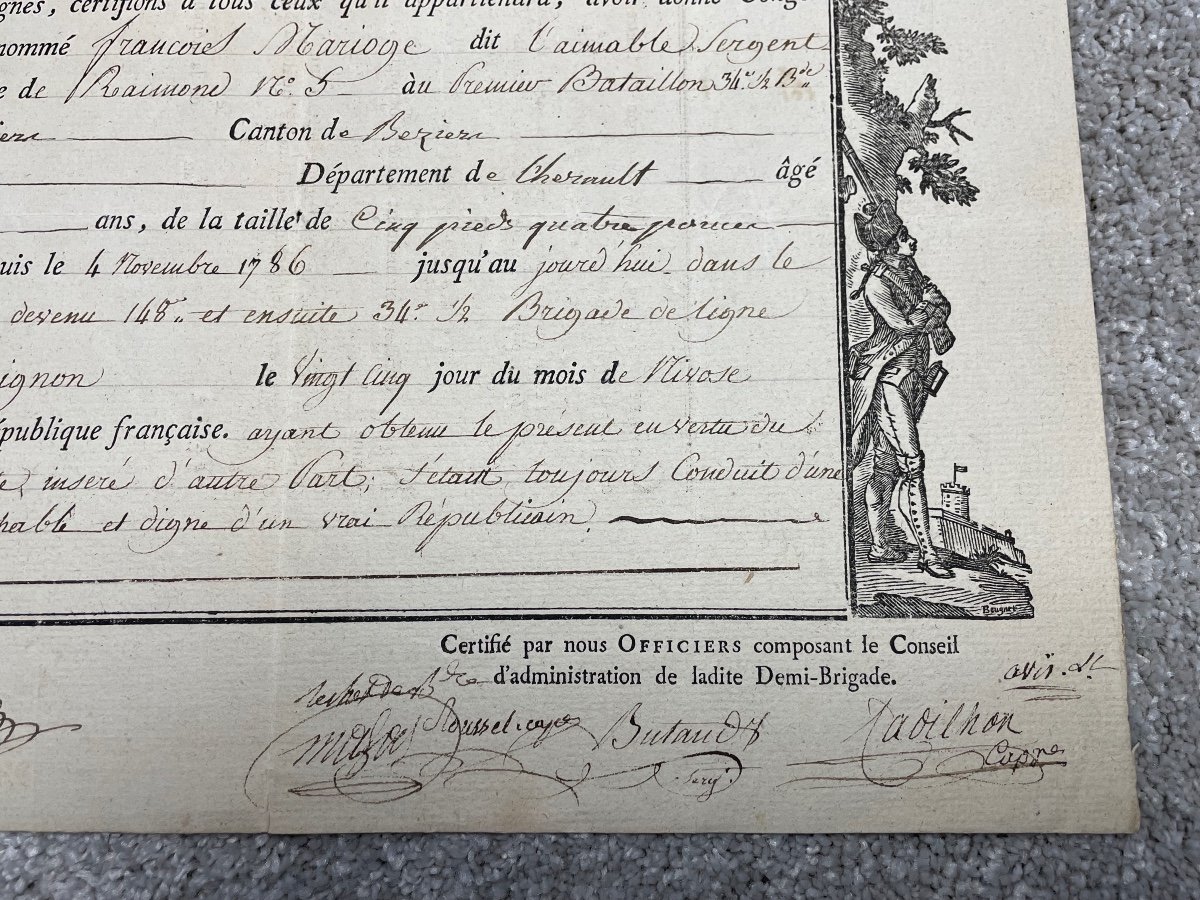 certifions à tous ceux qu'il appartiendra, avoir donné Congé
nommé francois Marioge dit l'aimable Sergent
e de Raimond N.º 5 au Premier Bataillon 34.e ½ B.de
iers Canton de Beziers
Département de Lherault âgé
ans, de la taille de Cinq pieds quatre pouces
uis le 4 Novembre 1786 jusqu'au jourd'hui dans le
devenu 148.e et ensuite 34.e ½ Brigade de ligne
ignon le Vingt Cinq jour du mois de Nivose
épublique française. ayant obtenu le présent en vertu du
inséré d'autre Part, s'étant toujours Conduit d'une
et digne d'un vrai Républicain.
Beugnet
Certifié par nous OFFICIERS composant le Conseil
d'administration de ladite Demi-Brigade.
Roussel cap.ne Butaud Sergt
Capne